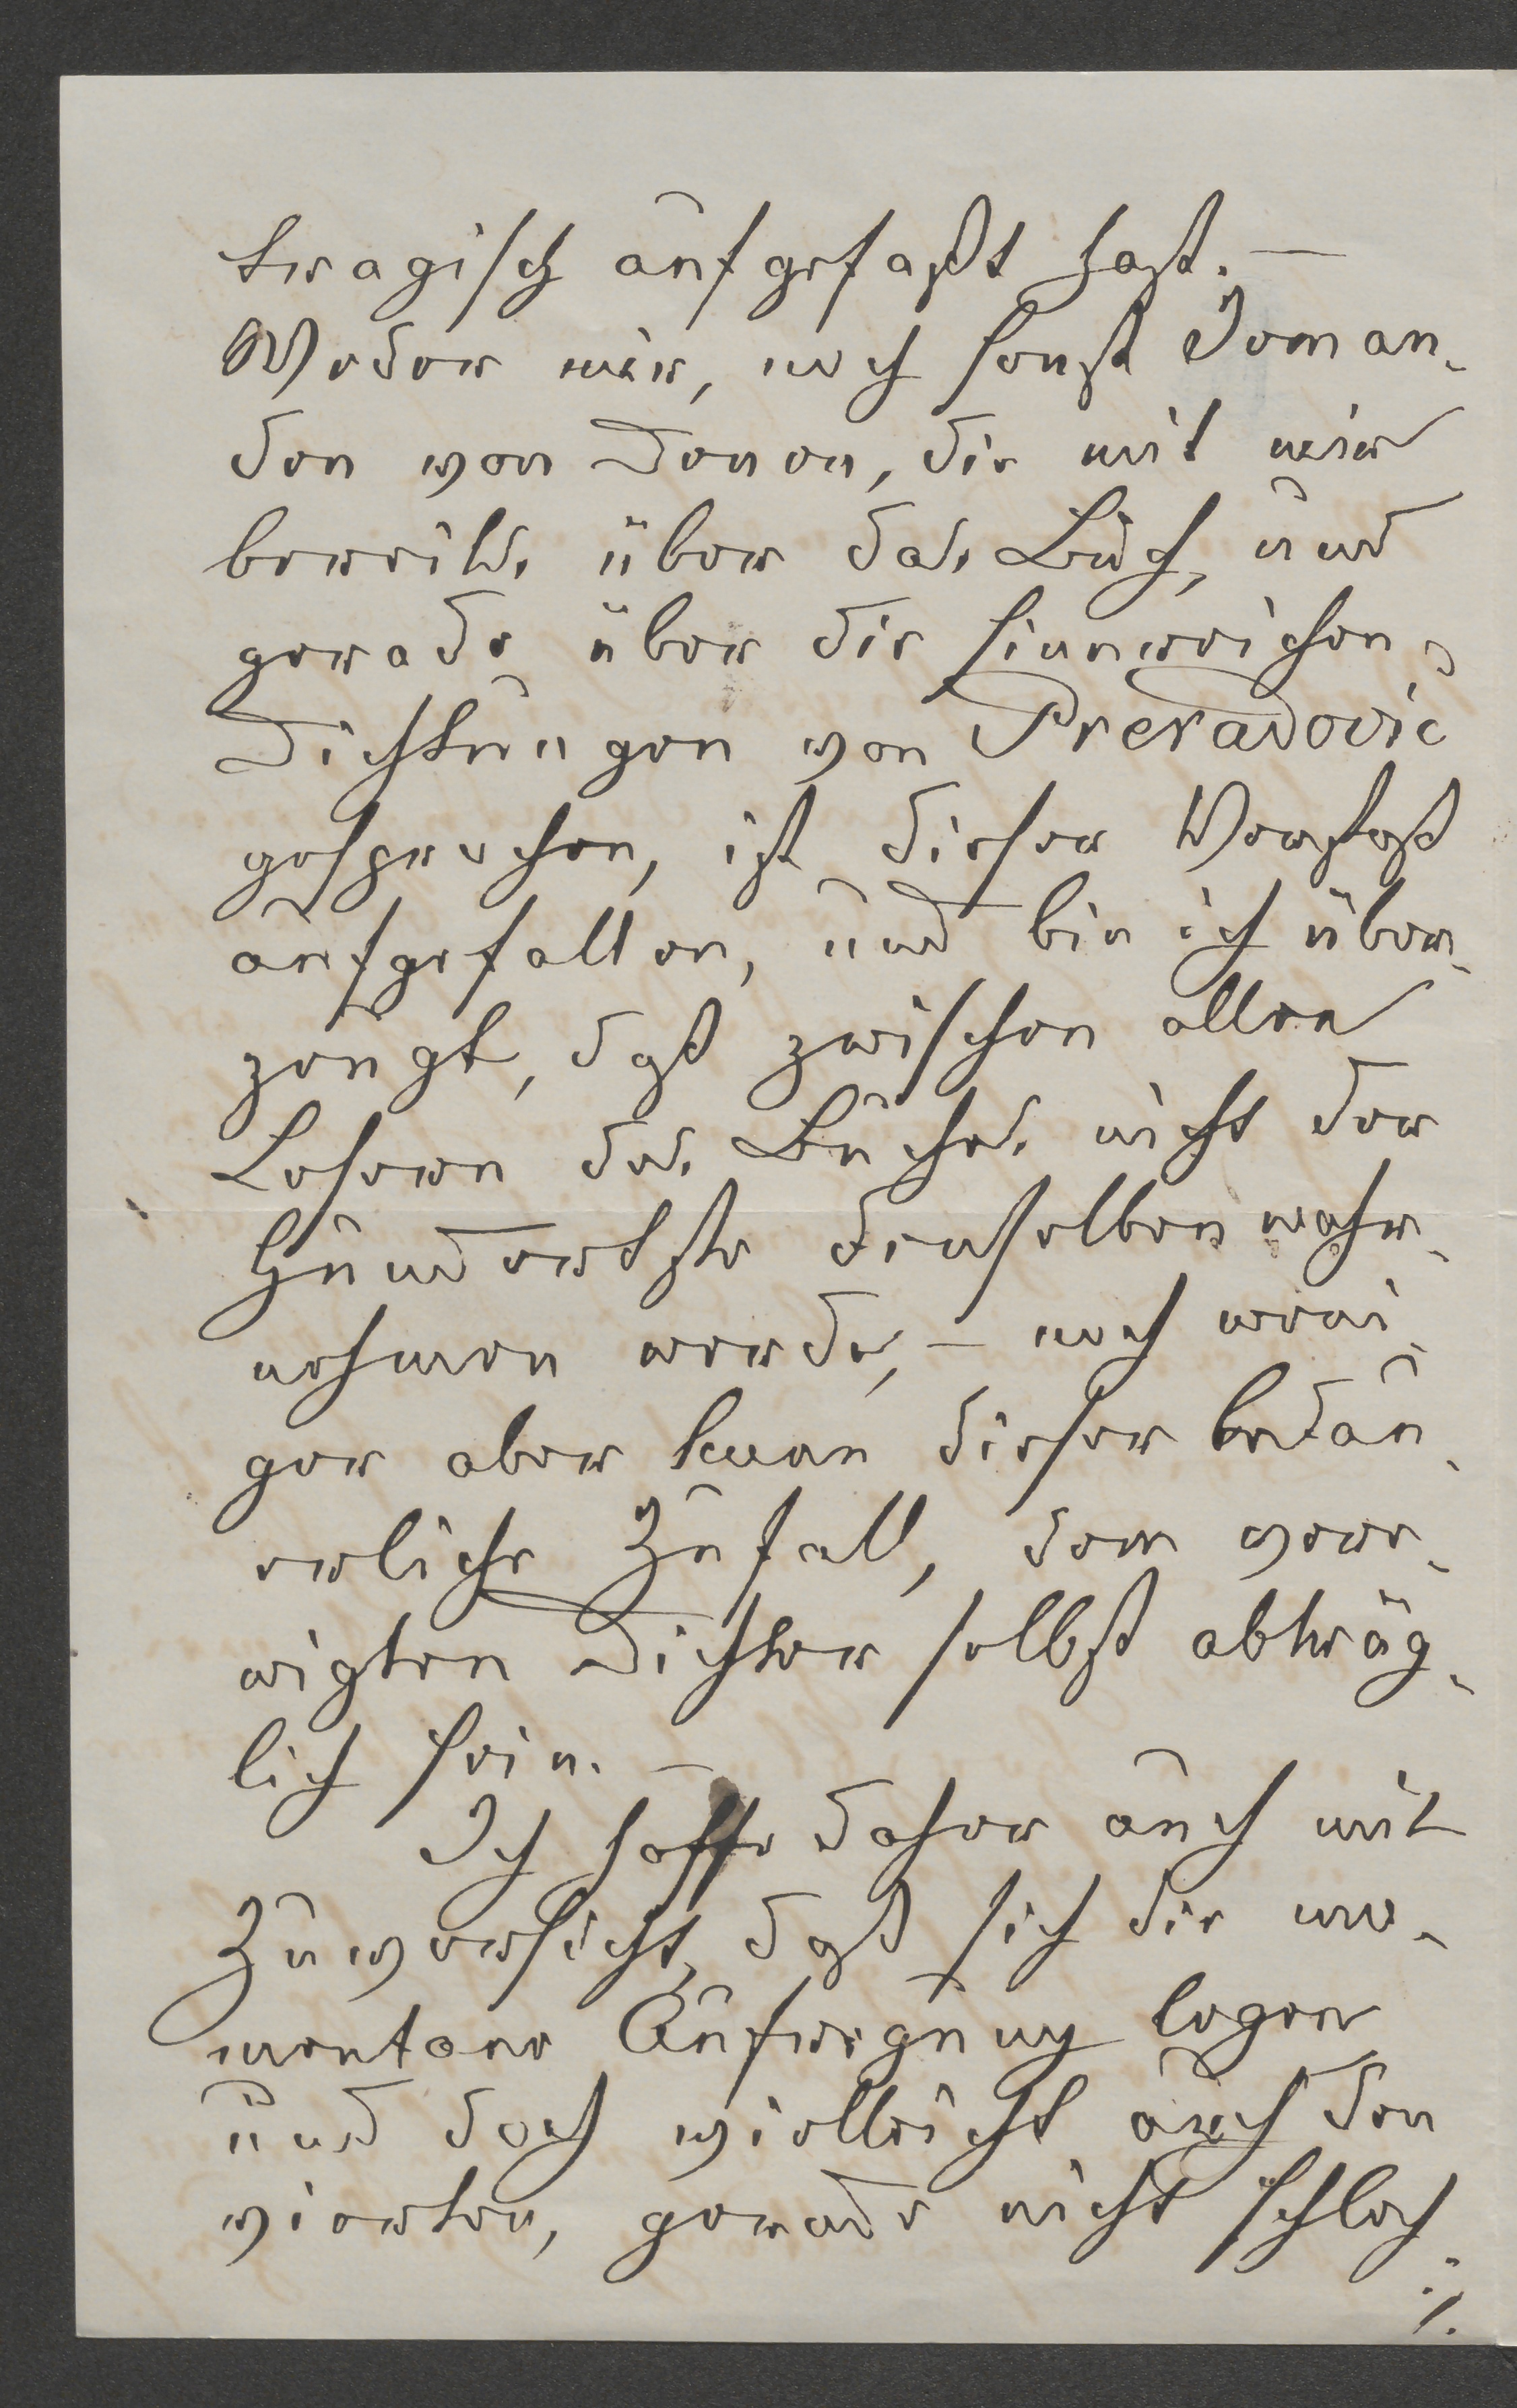 tragisch aufgefaßt hast. —
Weder mir, noch sonst Jeman-
den von Denen, die mit mir
bereits über das Buch, und
gerade über die sinnreichen
Dichtungen von Preradović
gesprochen, ist dieser Verstoß
aufgefallen, und bin ich über-
zeugt, daß zwischen allen
Lesern des Buches nicht der
Hundertste denselben wahr-
nehmen werde, — noch weni-
ger aber kann dieser bedau-
erliche Zufall, dem vere-
wigten Dichter selbst abträg-
lich sein. —
Ich hoffe daher auch mit
Zuversicht, daß sich die mo-
mentane Aufregung legen
und doch vielleicht auch den
vierten, gerade nicht schlech
./.